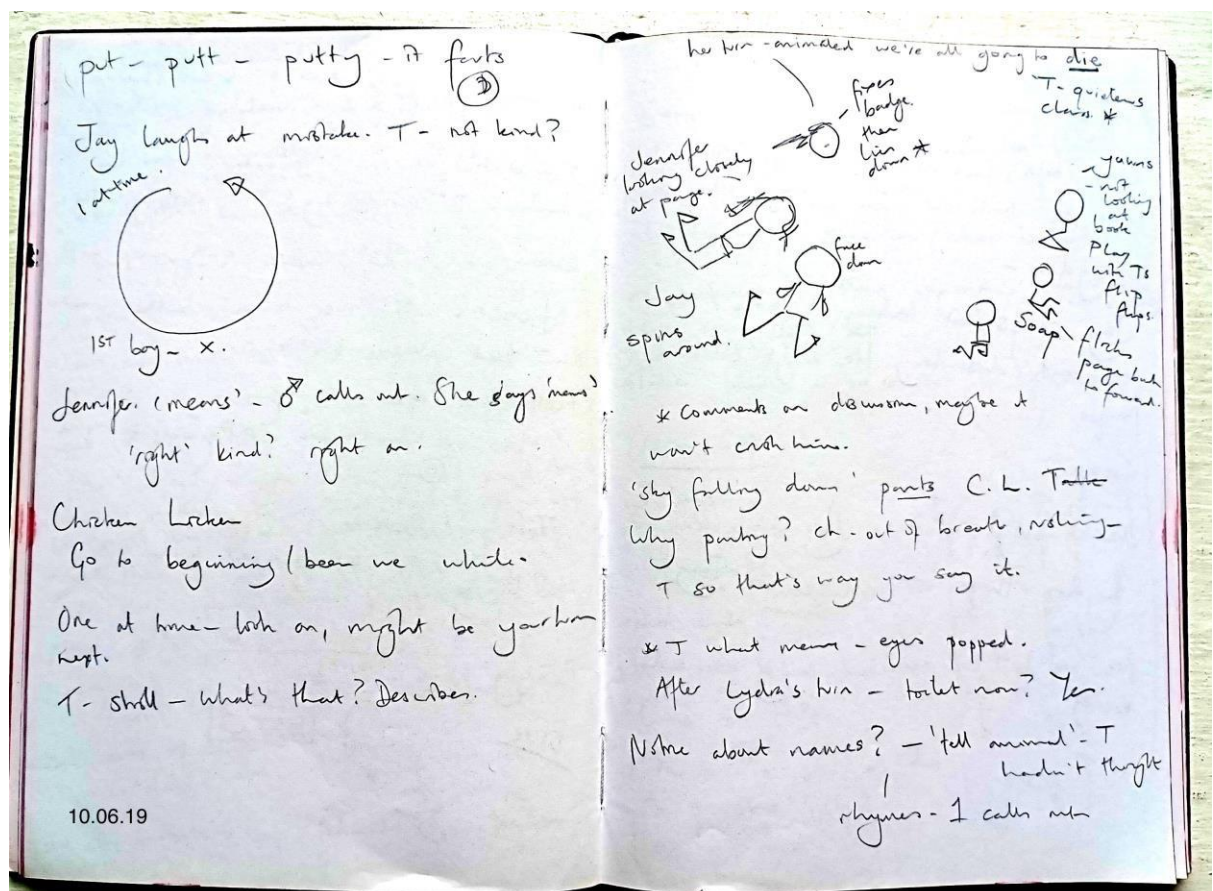 put - putt - putty - it farts
Jay laughs at mistake. T - not kind?
1 at time.
1ST boy - x.
Jennifer. 'means' - ♂ calls out. She says 'means'
'right' kind? right on.
Chicken Licken
Go to beginning / been we while.
One at time - look on, might be your turn
next.
T - stroll - what's that? Describes.
10.06.19
her turn - animated we're all going to die
T - quietens
class. *
fixes
badge.
then
lies
down *
Jennifer
looking closely
at page.
face
down
Jay
spins
around.
yawns
- not
looking
at
book
Play
with Ts
flip
flops.
Soap
flicks
page back
to forward.
* Comments on discussion, maybe it
won't crush him.
'sky falling down' pants C. L.
Why panting? ch - out of breath, rushing -
T so that's way you say it.
* T what mean - eyes popped.
After Lydia's turn - toilet now? Yes.
Notice about names? - 'tell animal' - T
hadn't thought
rhymes - 1 calls out